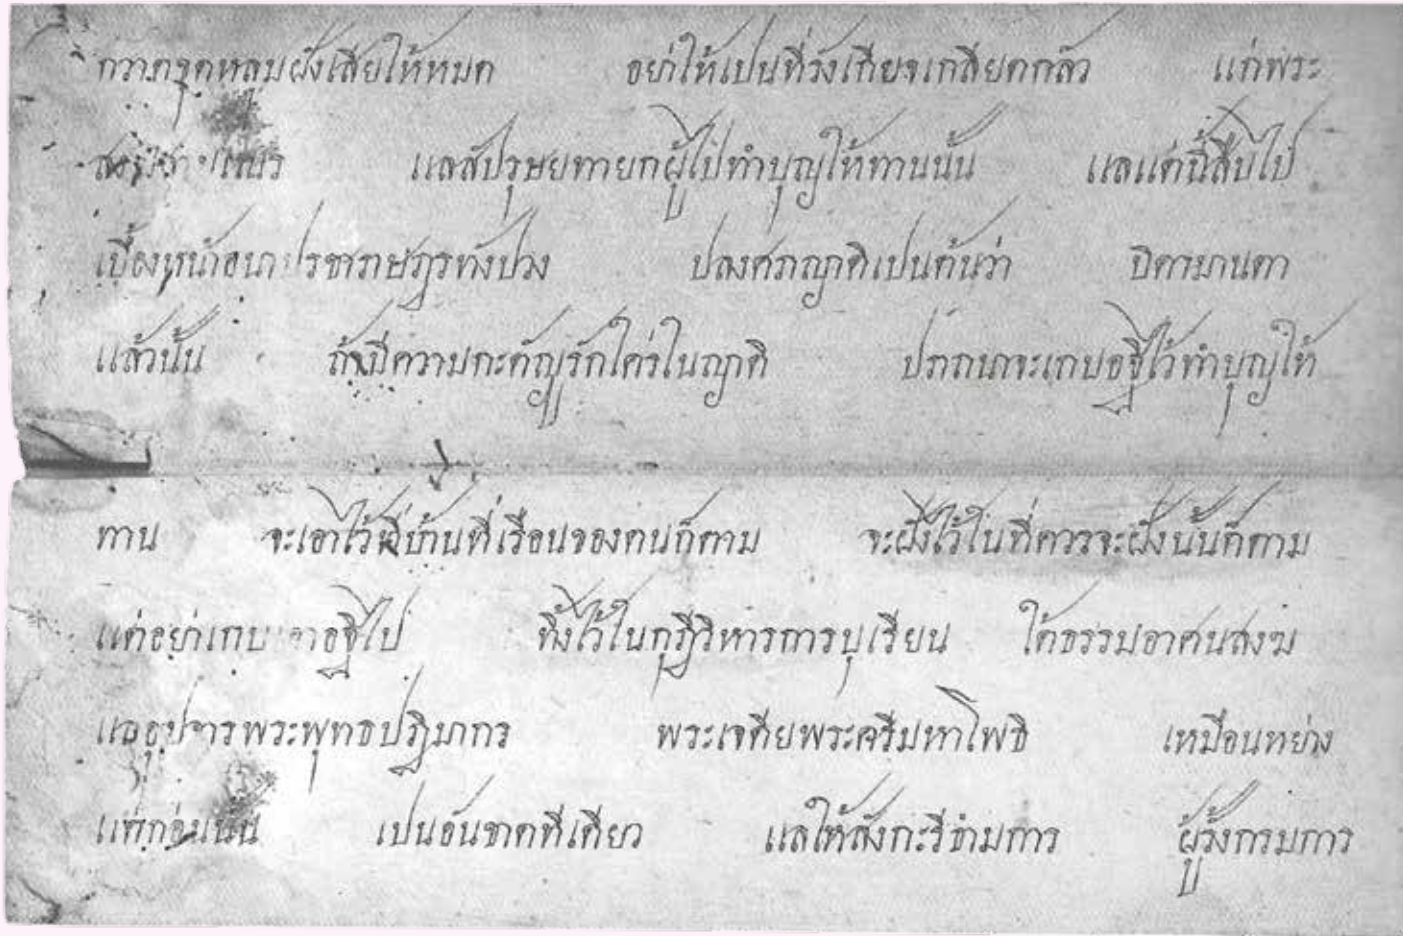 กวาดขุดหลุมฝังเสียให้หมด อย่าให้เปนที่รังเกียจเกลียดกลัว แก่พระ
แลสัปรุษยทายกผู้ไปทำบุญให้ทานนั้น แลแต่นี้สืบไป
เบื้องหน้าอนาประชาราษฎรทังปวง ปลงศภญาติเปนต้นว่า บิดามานดา
แล้วนั้น ถ้ามีความกะตัญูรักใคร่ในญาติ ปราถนาจะเกบอฐิไว้ทำบุญให้
ทาน จะเอาไว้ที่บ้านที่เรือนของตนก็ตาม จะฝังไว้ในที่ควรจะฝังนั้นก็ตาม
แต่อย่าเกบเอาอฐิไป ทิ้งไว้ในกุฎีวิหารการบุเรียน ใต้ธรรมอาศนสงฆ
แลอุปจารพระพุทธปฏิมากร พระเจดียพระศรีมหาโพธิ เหมือนหย่าง
แต่ก่อนนั้น เปนอันขาดทีเดียว แลให้สังกะรีธามการ ผู้รั้งกรมการ